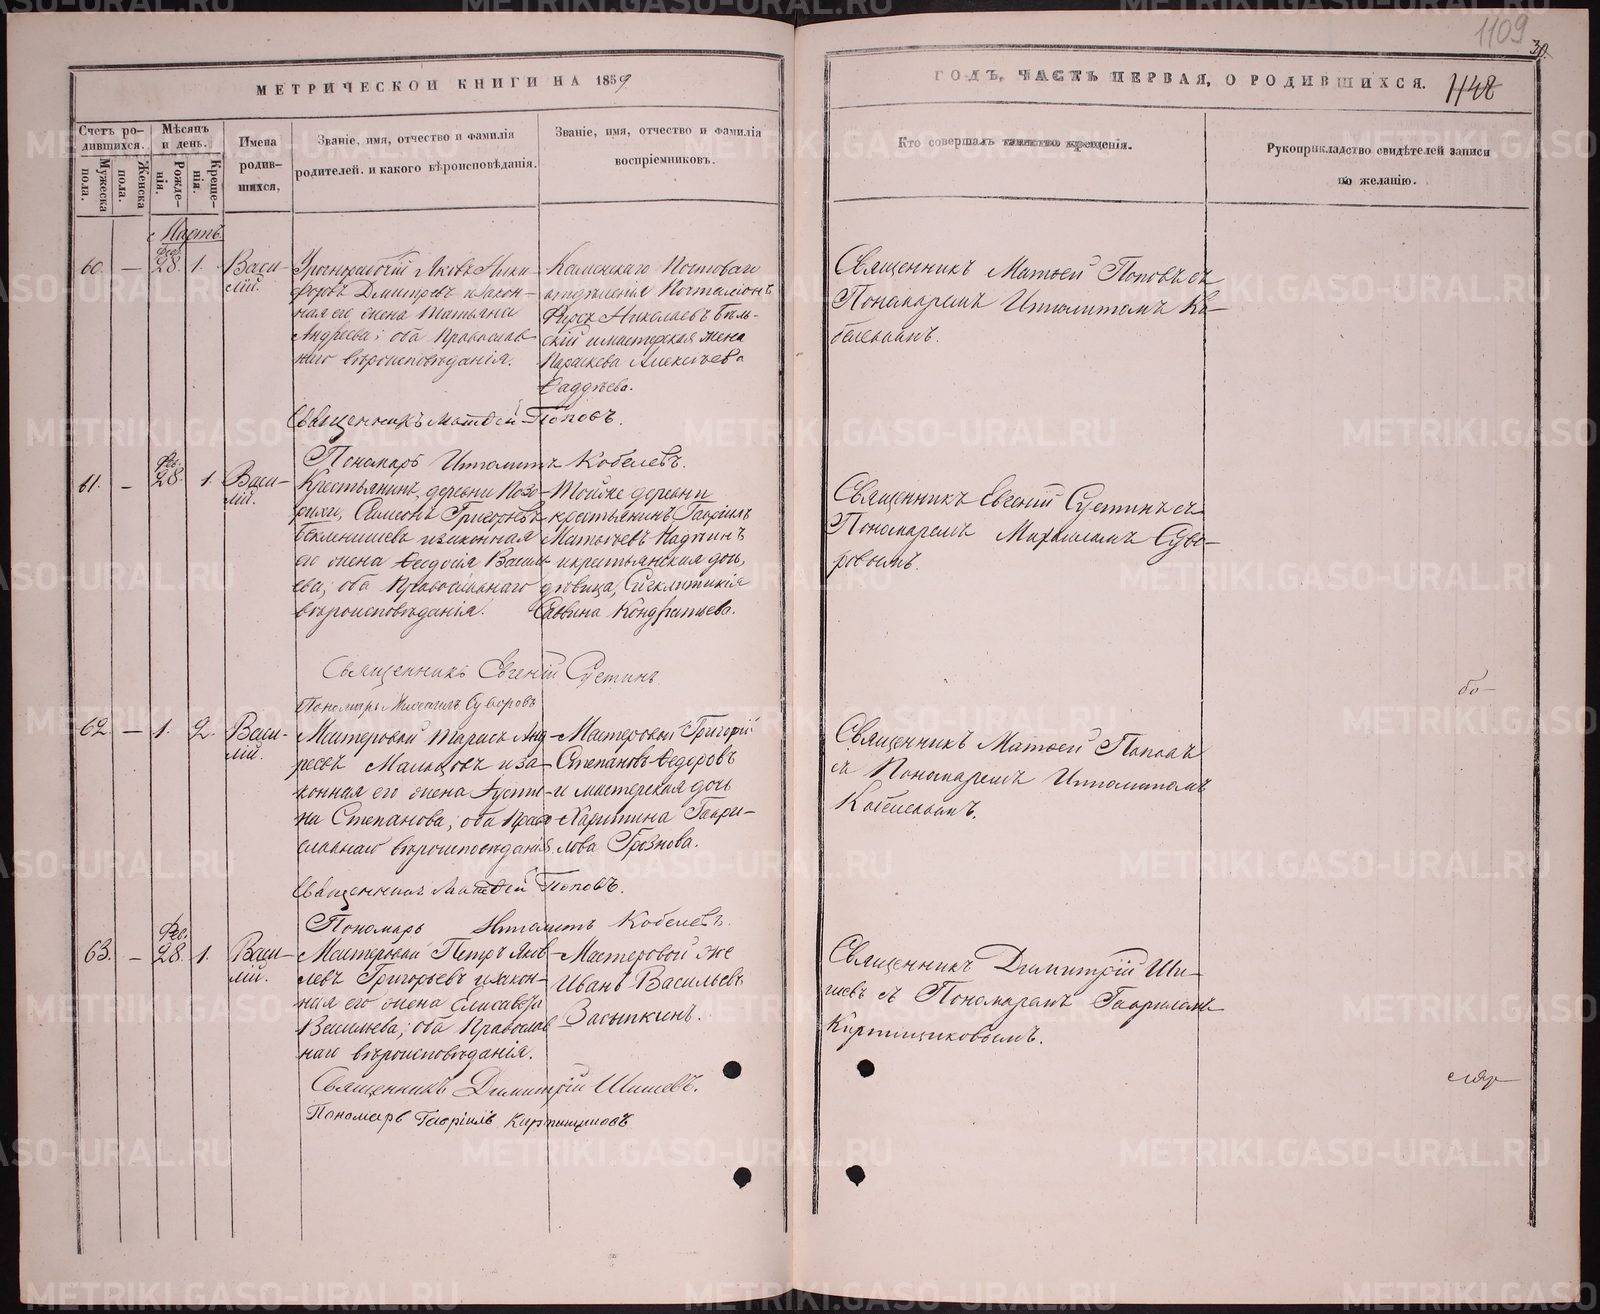 1109
30.
МЕТРИЧЕСКОЙ КНИГИ НА 1859
ГОДЪ, ЧАСТЬ ПЕРВАЯ, О РОДИВШИХСЯ.
1148
Счетъ ро-
дившихся.
Мужеска
пола.
Женска
пола.
Мѣсяцъ
и день.
Рожде-
нія.
Креще-
нія.
Имена
родив-
шихся,
Званіе, имя, отчество и фамилія
родителей. и какого вѣроисповѣданія.
Званіе, имя, отчество и фамилія
воспріемниковъ.
Кто совершалъ таинство крещенія.
Рукоприкладство свидѣтелей записи
по желанію.
Мартъ.
60. — Фев. 28. 1.
Васи-
лій.
Урочнорабочій Яковъ Ники-
форовъ Дмитріевъ и закон-
ная его жена Татьяна
Андреева; оба Православ-
наго вѣроисповѣданія.
Каменскаго Почтоваго
отдѣленія Почталіонъ
Николаевъ Бѣль-
скій и мастерская жена
Параскева Алексѣева
Ѳаддѣева.
Священникъ Матѳей Поповъ съ
Пономаремъ Ипполитомъ Ко-
белевымъ.
Священникъ Матѳей Поповъ.
Пономарь Ипполитъ Кобелевъ.
61. — Фев. 28. 1.
Васи-
лій.
Крестьянинъ, деревни
Симеонъ Григорьевъ
и законная
его жена Ѳеодосія Василь-
ева; оба Православнаго
вѣроисповѣданія.
Тойже деревни
крестьянинъ Гавріилъ
Матвѣевъ
и крестьянская дочь,
дѣвица, Сигклитикія
Саввина Кондратьева.
Священникъ Евгеній Сустинъ съ
Пономаремъ Михаиломъ Суво-
ровымъ.
Священникъ Евгеній Сустинъ
Пономарь Михаилъ Суворовъ
62. — 1. 2.
Васи-
лій.
Мастеровой Тарасъ Анд-
реевъ Мальцовъ и за-
конная его жена Іусти-
на Степанова; оба Право-
славнаго вѣроисповѣданія.
Мастеровой Григорій
Степановъ Ѳедоровъ
и мастерская дочь
Харитина Гаври-
лова Грознова.
Священникъ Матѳей Поповъ
съ Пономаремъ Ипполитомъ
Кобелевымъ.
Священникъ Матѳей Поповъ.
Пономарь Ипполитъ Кобелевъ.
63. — Фев. 28. 1.
Васи-
лій.
Мастеровой Петръ Яков-
левъ Григорьевъ и закон-
ная его жена Елисавета
Васильева; оба Православ-
наго вѣроисповѣданія.
Мастеровой же
Иванъ Васильевъ
Засыпкинъ.
Священникъ Димитрій Ши-
шевъ съ Пономаремъ Гавриломъ
Кирпищиковымъ.
Священникъ Димитрій Шишевъ.
Пономарь Гавріилъ Кирпищиковъ